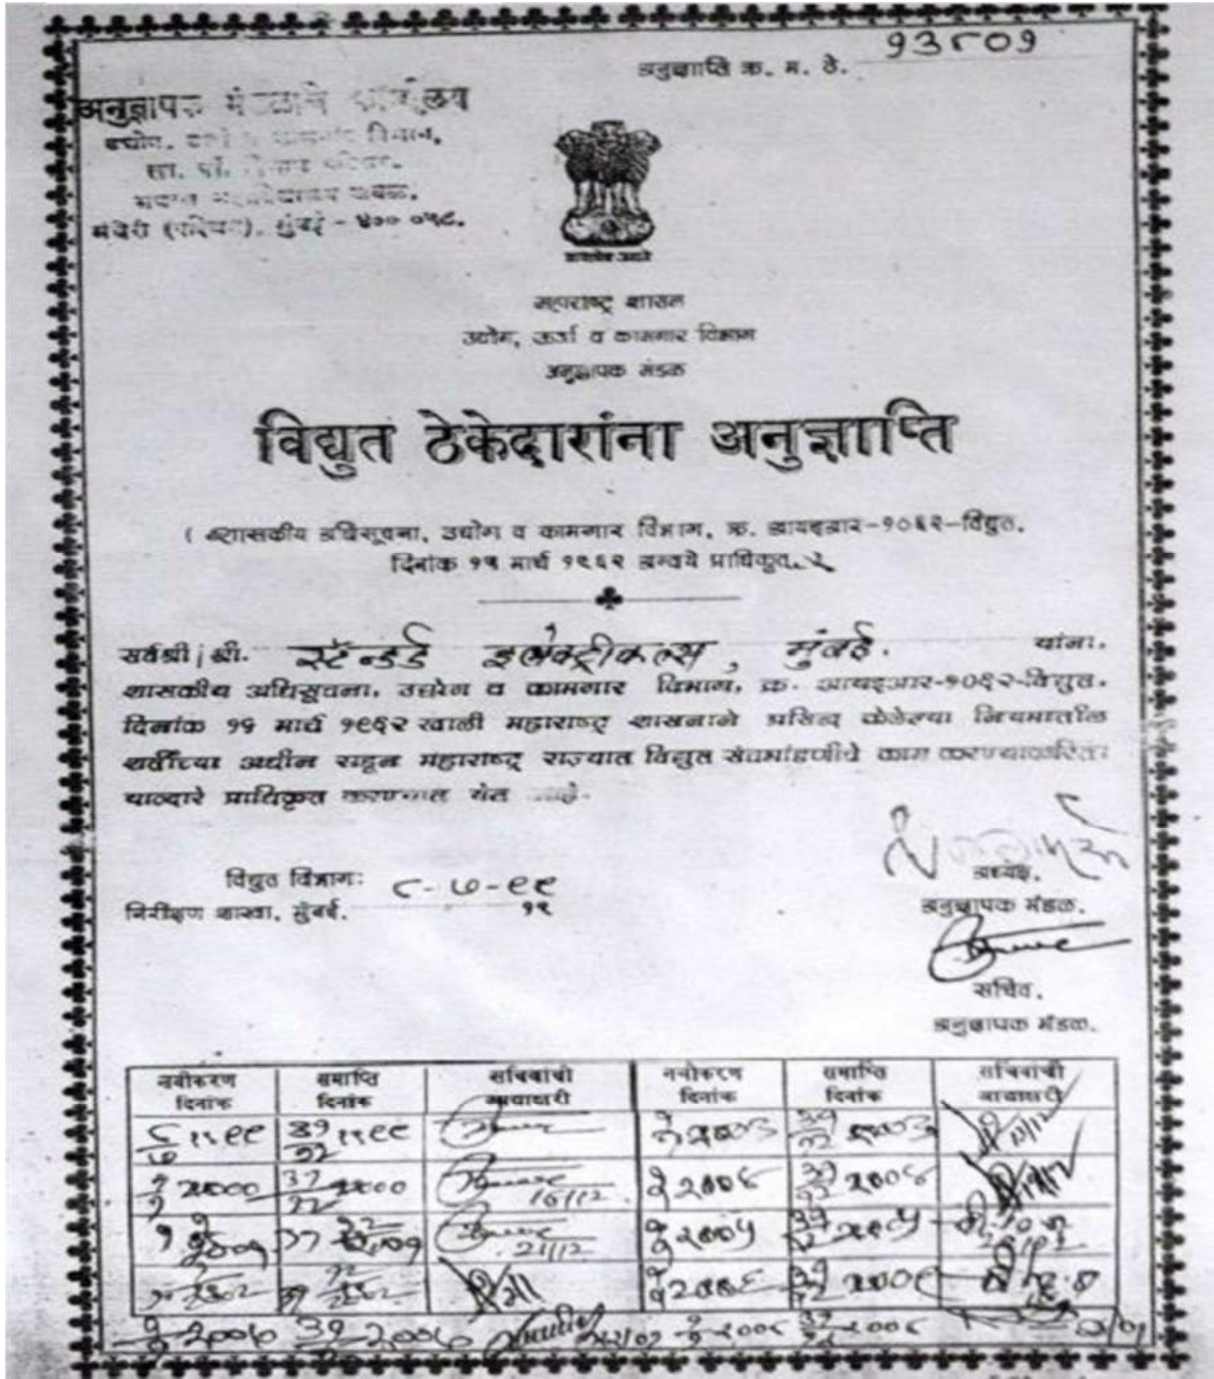 अनुज्ञाप्ति क्र. म. ठे. १३८०१
अनुज्ञापक मंडळाचे कार्यालय
उद्योग, विभाग,
अंधेरी (पश्चिम), मुंबई - ४०० ०५८.
महाराष्ट्र शासन
उद्योग, ऊर्जा व कामगार विभाग
अनुज्ञापक मंडळ
विद्युत ठेकेदारांना अनुज्ञाप्ति
( शासकीय अधिसूचना, उद्योग व कामगार विभाग, क्र. आयइआर-१०६२-विद्युत.
दिनांक १५ मार्च १९६२ अन्वये प्राधिकृत.
सर्वश्री/श्री. स्टॅन्डर्ड इलेक्ट्रीकल्स, मुंबई. यांना.
शासकीय अधिसूचना, उद्योग व कामगार विभाग, क्र. आयइआर-१०६२-विद्युत.
दिनांक १५ मार्च १९६२ खाली महाराष्ट्र शासनाने प्रसिध्द केलेल्या नियमातील
शर्तीच्या अधीन राहून महाराष्ट्र राज्यात विद्युत संचमांडणीचे काम करण्याकरिता
याव्दारे प्राधिकृत करण्यात येत आहे.
विद्युत विभाग: ८-७-९९
निरीक्षण शाखा, मुंबई. १९
अध्यक्ष.
अनुज्ञापक मंडळ.
सचिव.
अनुज्ञापक मंडळ.
नवीकरण दिनांक समाप्ति दिनांक सचिवांची आद्याक्षरी नवीकरण दिनांक समाप्ति दिनांक सचिवांची आद्याक्षरी
८/७ १९९९ ३१/१२ १९९९ १/१ २००३ ३१/१२ २००३
१/१ २००० ३१/१२ २००० 16/12 १/१ २००४ ३१/१२ २००४
१/१ २००१ ३१/१२ २००१ 21/12 १/१ २००५ ३१/१२ २००५
१/१ २००२ ३१/१२ २००२ १/१ २००६ ३१/१२ २००६
१/१ २००७ ३१/१२ २००७ १/१ २००८ ३१/१२ २००८